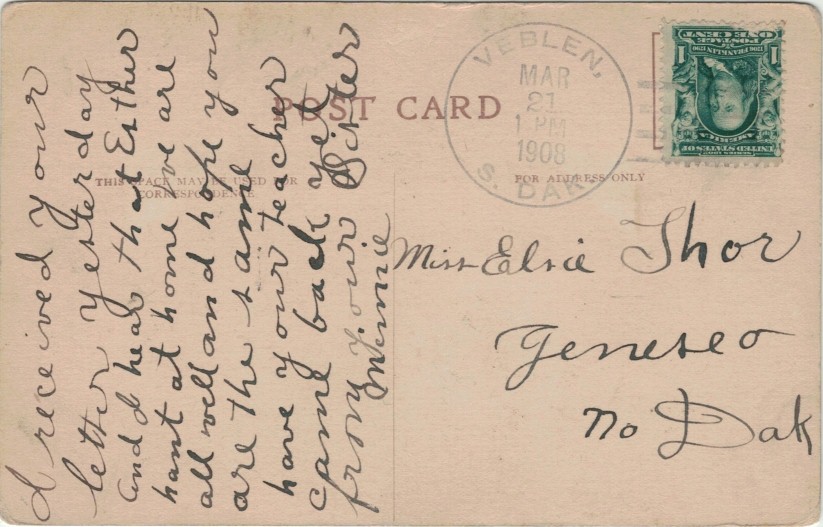 POST CARD
THIS SPACE MAY BE USED FOR
CORRESPONDENCE
FOR ADDRESS ONLY
VEBLEN,
MAR
21
1 PM
1908
S. DAK.
SERIES 1902
UNITED STATES OF
AMERICA
1706 FRANKLIN 1790
POSTAGE
ONE CENT
1 1
I received your
letter yesterday
and I hear that Esther
hant at home we are
all well and hope you
are the same
have your teacher
came back yet
from your Sister
Minnie
Miss Elsie Thor
Geneseo
No Dak